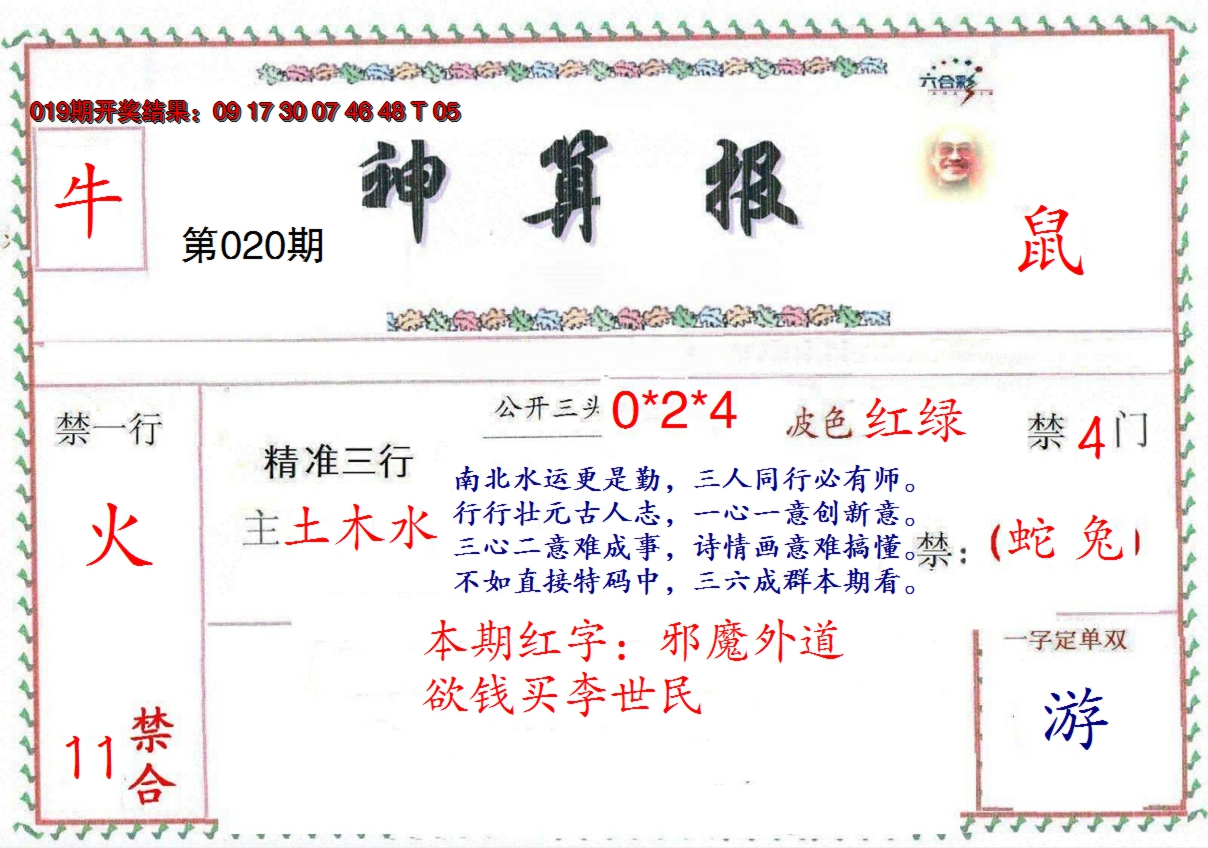 六合彩
019期开奖结果：09 17 30 07 46 48 T 05
神算报
牛
第020期
鼠
禁一行
火
11
禁合
公开三头 0*2*4
波色 红绿
禁 4 门
精准三行
主 土木水
南北水运更是勤，三人同行必有师。
行行壮元古人志，一心一意创新意。
三心二意难成事，诗情画意难搞懂。
不如直接特码中，三六成群本期看。
禁：（蛇 兔）
本期红字：邪魔外道
欲钱买李世民
一字定单双
游